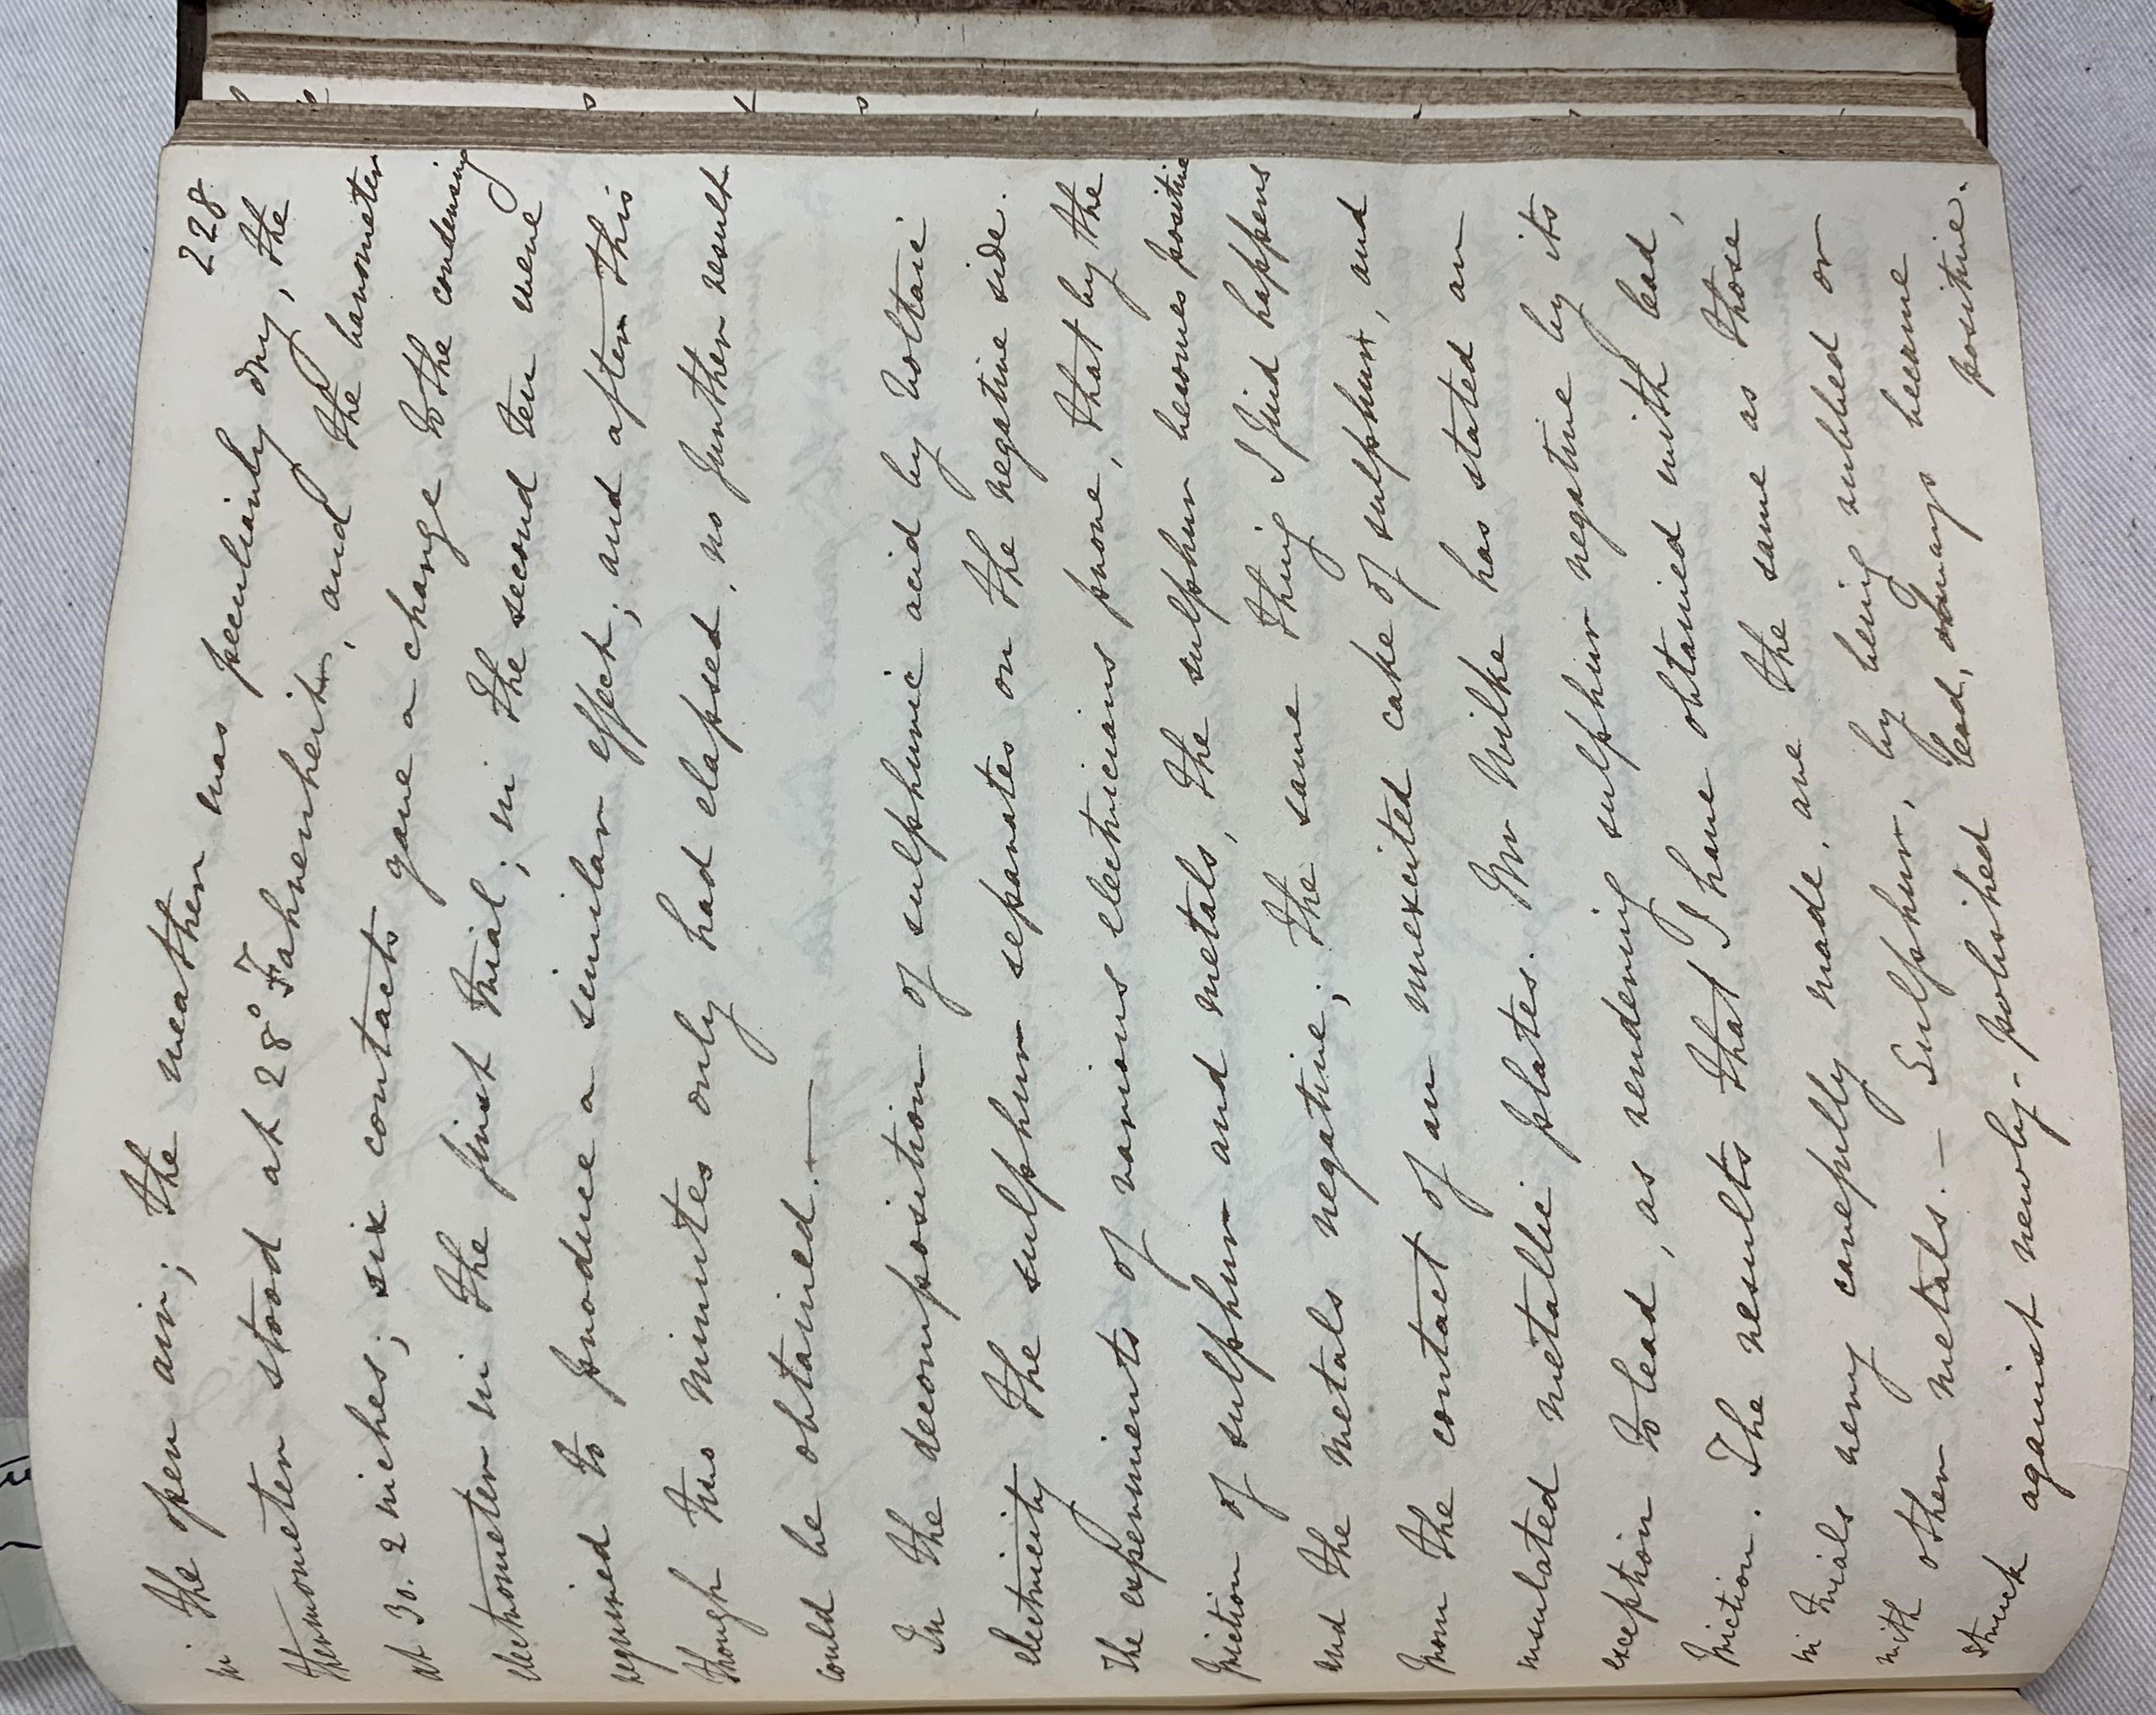 228
in the open air; the weather was peculiarly dry, the
thermometer stood at 28° Fahrenheit, and the barometer
at 30.2 inches; six contacts gave a change to the condensing
electrometer in the first trial; in the second ten were
required to produce a similar effect; and after this
though two minutes only had elapsed, no further result
could be obtained.—
In the decomposition of sulphuric acid by Voltaic
electricity the sulphur separates on the negative side.
The experiments of various electricians prove, that by the
friction of sulphur and metals, the sulphur becomes positive
and the metals negative; the same thing I find happens
from the contact of an unexcited cake of sulphur, and
insulated metallic plates. Mr Wilke has stated an
exception to lead, as rendering sulphur negative by its
friction. The results that I have obtained with lead,
in trials very carefully made, are the same as those
with other metals.— Sulphur, by being rubbed or
struck against newly-polished lead, always became
positive.